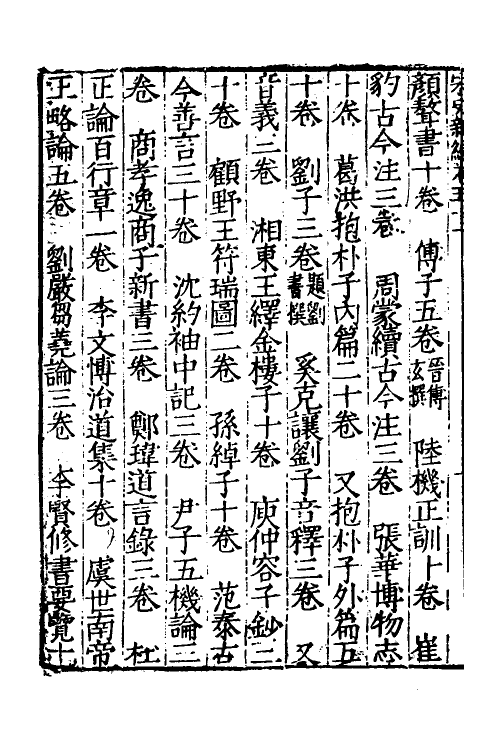 宋史新編卷五十二
顏聱書十卷　傅子五卷晉傅玄撰　陸機正訓十卷　崔
豹古今注三卷　周蒙續古今注三卷　張華博物志
十卷　葛洪抱朴子內篇二十卷　又抱朴子外篇五
十卷　劉子三卷題劉晝撰　奚克讓劉子音釋三卷　又
音義三卷　湘東王繹金樓子十卷　庾仲容子鈔三
十卷　顧野王符瑞圖二卷　孫綽子十卷　范泰古
今善言三十卷　沈約袖中記三卷　尹子五機論三
卷　商孝逸商子新書三卷　鄭瑋道言錄三卷　杜
正論百行章一卷　李文博治道集十卷　虞世南帝
王略論五卷　劉嚴芻蕘論三卷　李賢修書要覽十